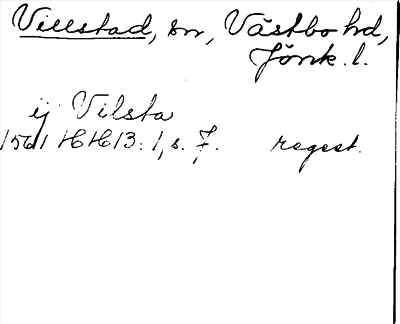 Villstad, sn, Västbo hd,
Jönk. l.
ij Vilsta
1561 HH13: 1, s. 7. regest.